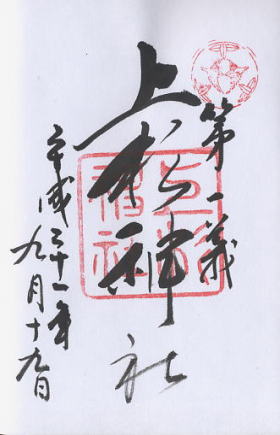 第一義
上杉神社
平成二十一年
九月十九日